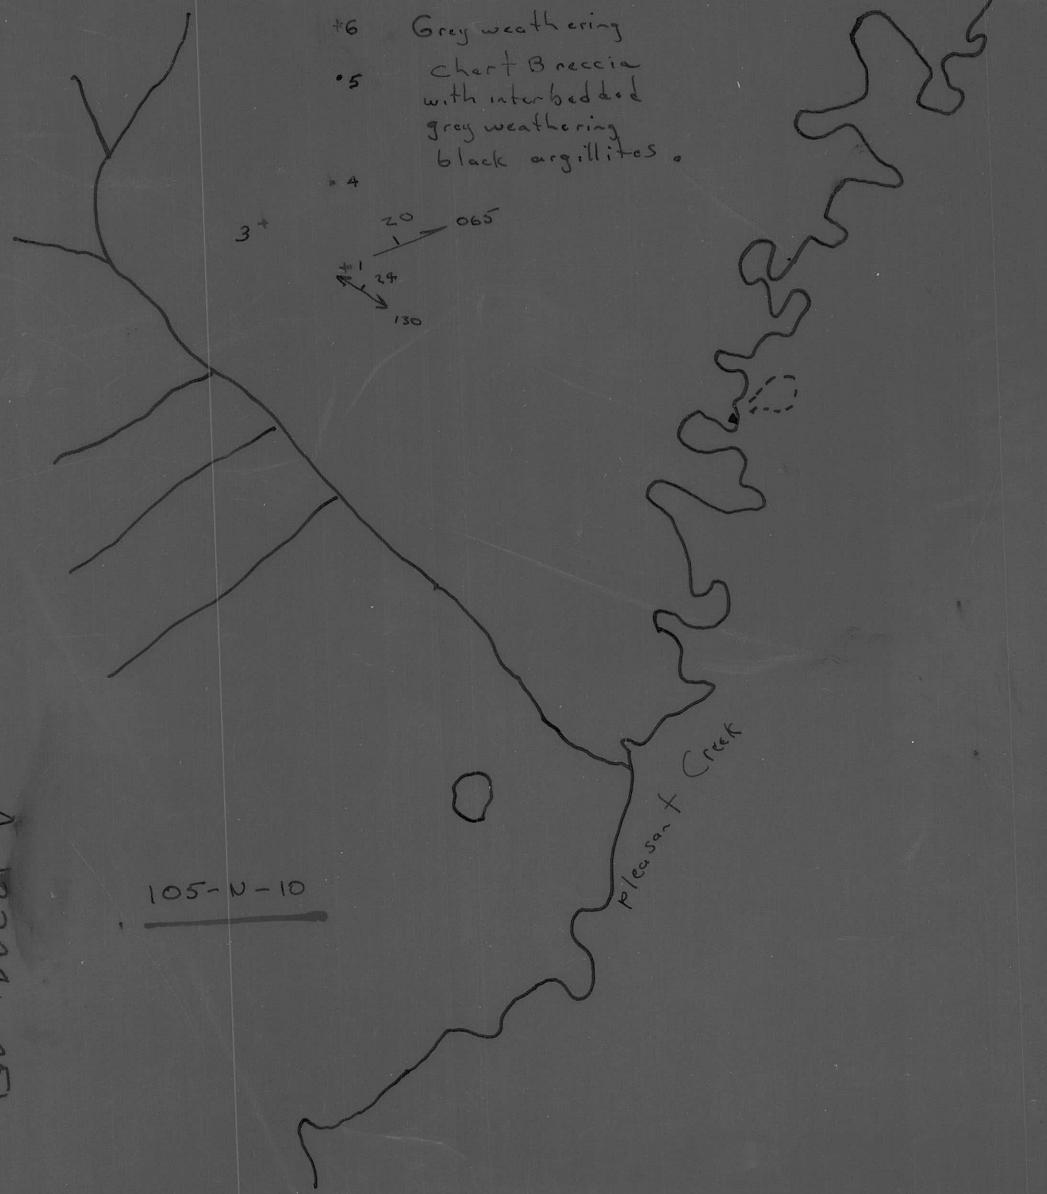 6 Grey weathering
5 Chert Breccia
with interbedded
grey weathering
black argillites.
4
3
20 065
1
24
130
Pleasant Creek
105-N-10